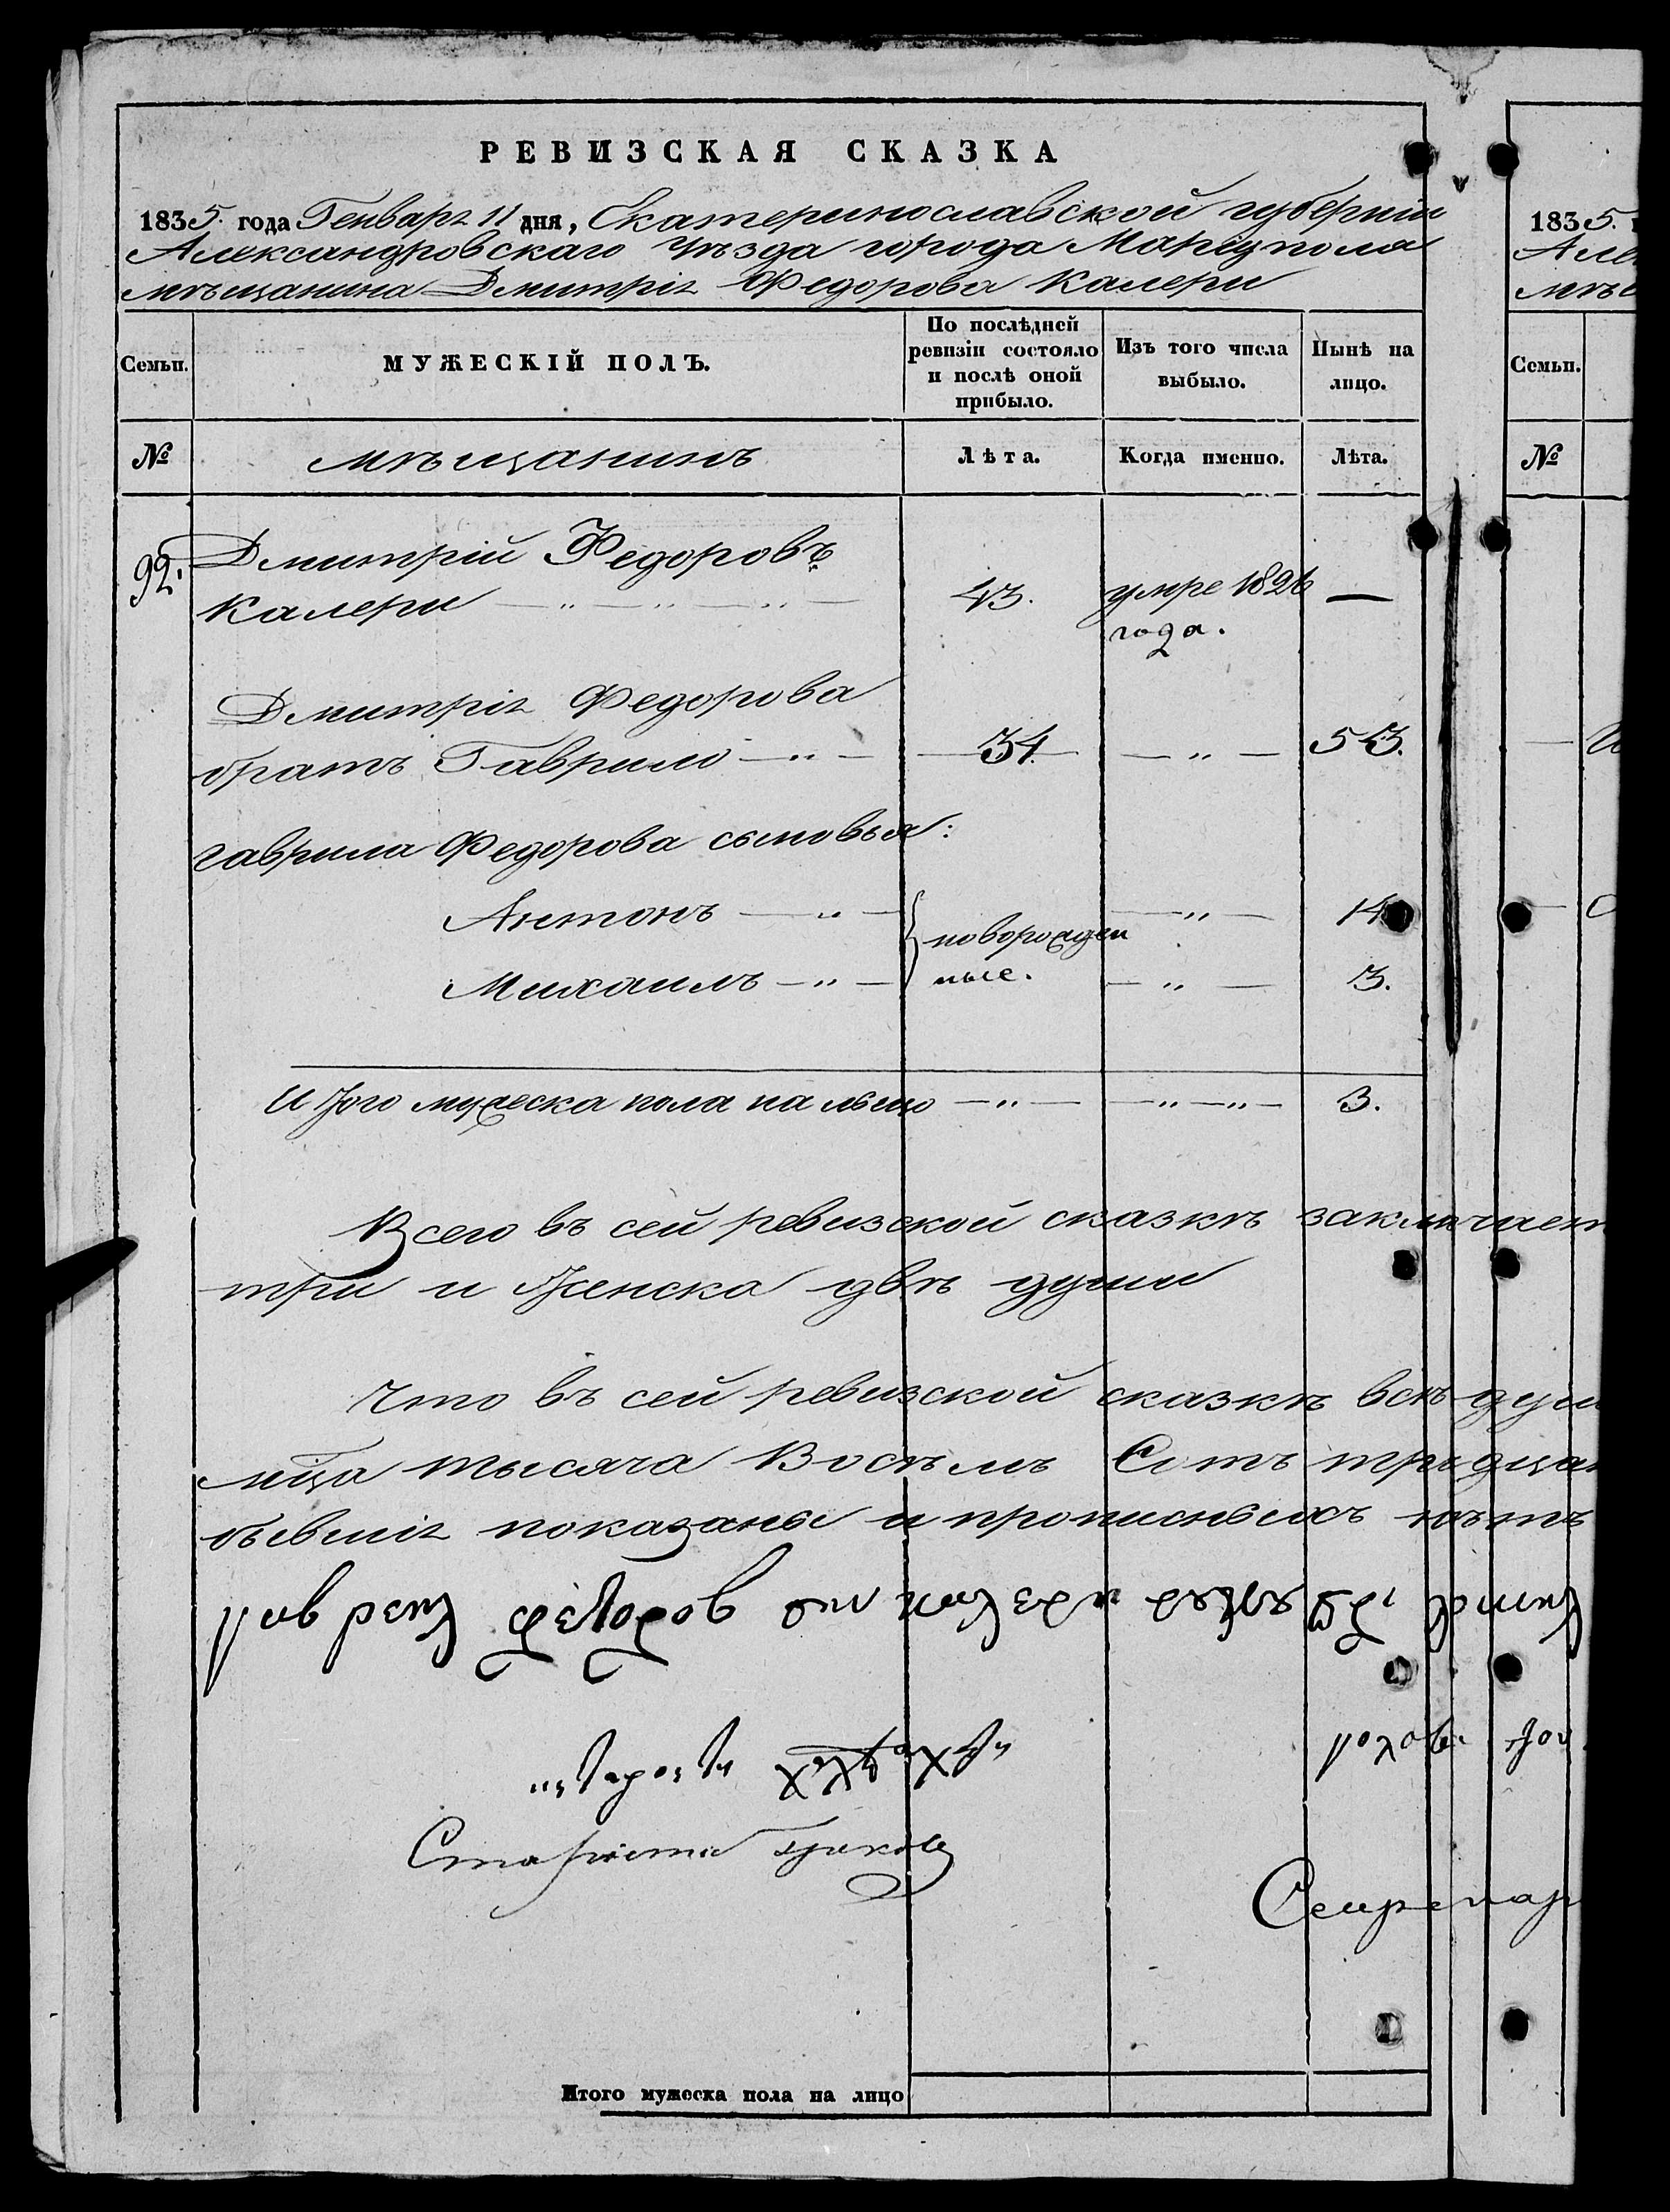 РЕВИЗСКАЯ СКАЗКА
1835. года Генваря 11 дня, Екатеринославской губернии
Александровскаго уѣзда города Мариуполя
мѣщанина Дмитрія Федорова Калери
Семьи. МУЖЕСКІЙ ПОЛЪ. По послѣдней ревизіи состояло и послѣ оной прибыло. Изъ того числа выбыло. Нынѣ на лицо.
№ мѣщанинъ Лѣта. Когда именно. Лѣта.
92. Дмитрій Федоровъ
Калери — „ — „ — „ — 43. умре 1826 —
года.
Дмитрія Федорова
братъ Гаврило — „ — 34. — „ — 53.
гаврила Федорова сыновья:
Антонъ — „ — новорожден — „ — 14
Михаилъ — „ — ные. — „ — 3.
Итого мужеска пола на лыцо — „ — — „ — „ — 3.
Всего въ сей ревизской сказкѣ заключает
три и Женска двѣ души
Что въ сей ревизской сказкѣ всѣ душ
мѣца тысяча Восѣмъ Сотъ тридцат
бывшія показаны и прописныхъ нѣтъ
Староста
Секретар
183 5.
Але
мѣщ
Семьи.
№
Итого мужеска пола на лицо